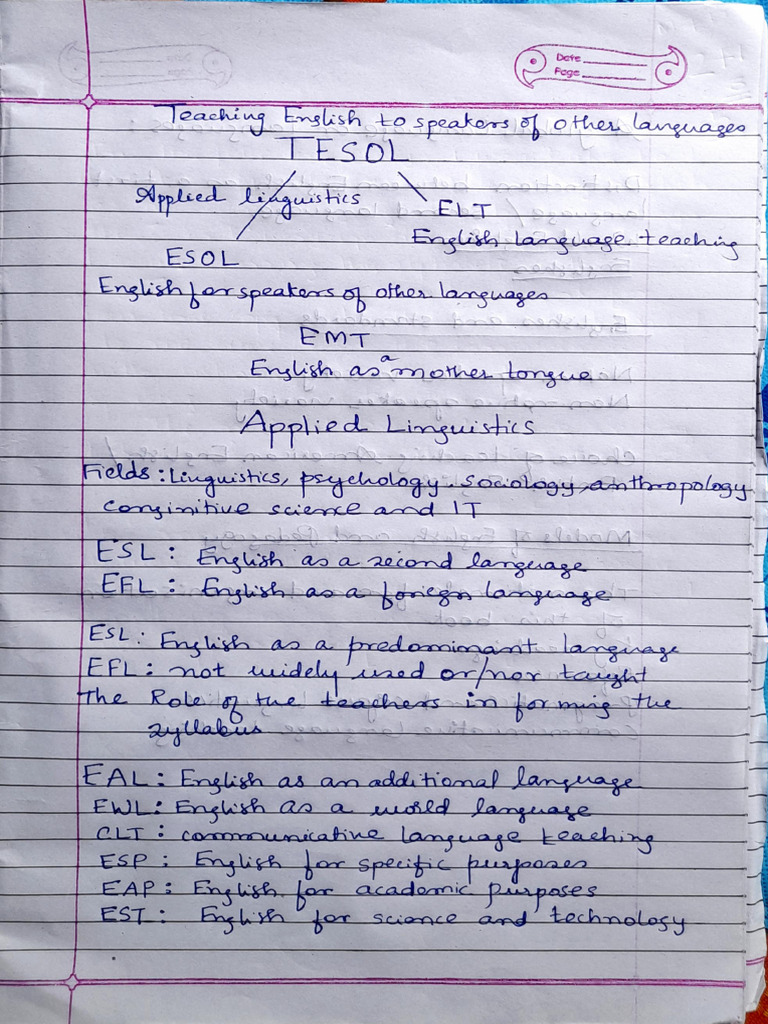 Date
Page
Teaching English to speakers of other languages
TESOL
Applied linguistics
ELT
English language teaching
ESOL
English for speakers of other languages
EMT
English as a mother tongue
Applied Linguistics
Fields: Linguistics, psychology, sociology, anthropology
conginitive science and IT
ESL: English as a second language
EFL: English as a foriegn language
ESL: English as a predominant language
EFL: not widely used or/nor taught
The Role of the teachers in forming the
syllabus
EAL: English as an additional language
EWL: English as a world language
CLT: communicative language teaching
ESP: English for specific purposes
EAP: English for academic purposes
EST: English for science and technology